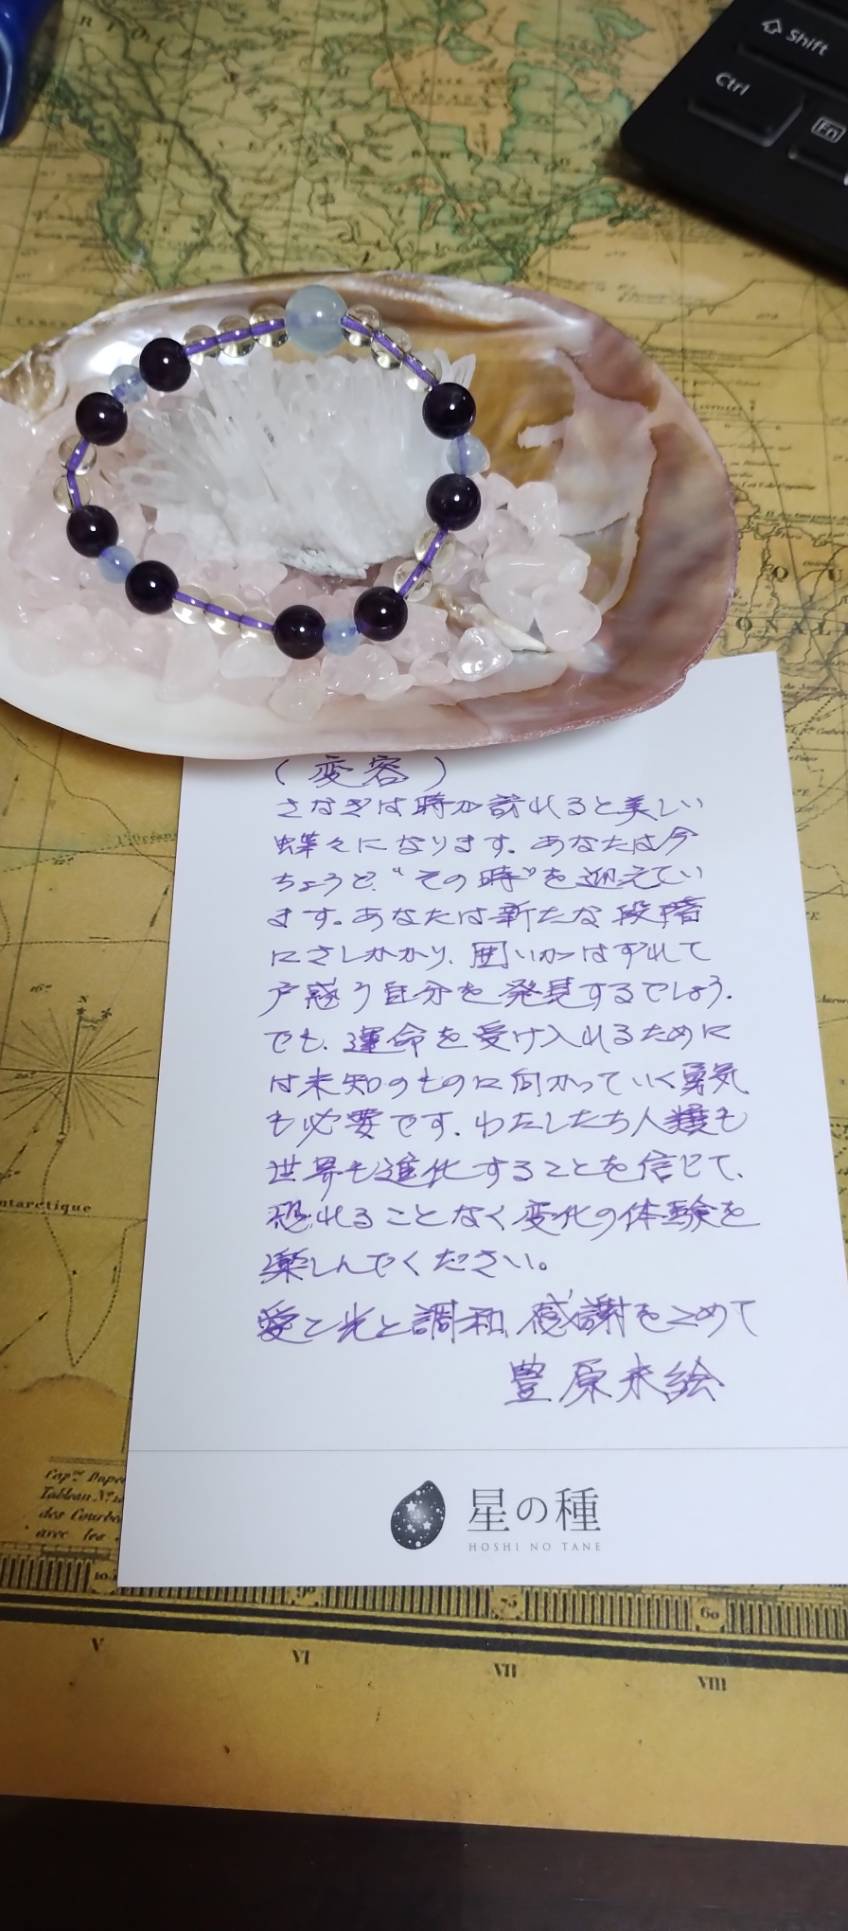 Shift
Ctrl
Fn
(変容)
さなぎは時が訪れると美しい
蝶々になります。あなたは今
ちょうど、“その時”を迎えてい
ます。あなたは新たな段階
にさしかかり、囲いがはずれて
戸惑う自分を発見するでしょう。
でも、運命を受け入れるために
は未知のものに向かっていく勇気
も必要です。わたしたち人類も
世界も進化することを信じて、
恐れることなく変化の体験を
楽しんでください。
愛と光と調和、感謝をこめて
豊原未絵
星の種
HOSHI NO TANE
ntarctique
Tableau
des Courbe
avec les
60
V
VI
VII
VIII